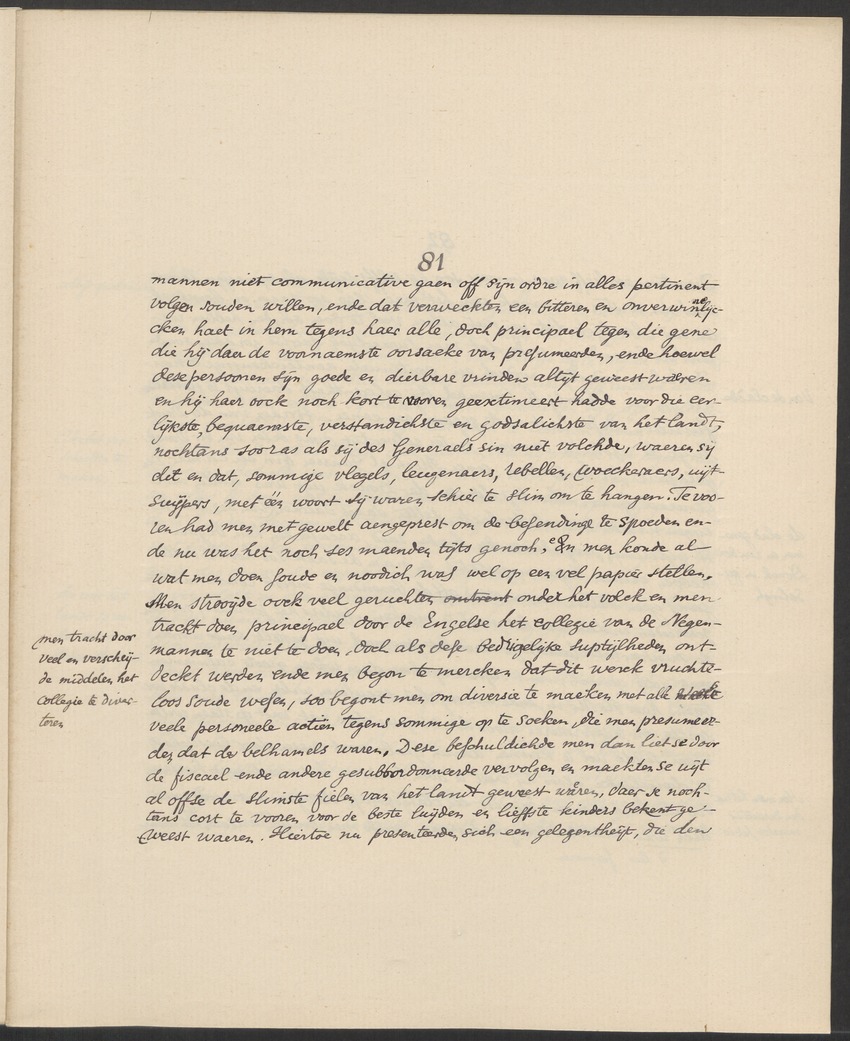 81
mannen niet communicative gaen off sijn ordre in alles pertinent
volgen souden willen, ende dat verweckten een bitteren en onverwinnelijc-
cken haet in hem tegens haer alle, doch principael tegen die gene
die hij daer de voornaemste oorsaeke van presumeerden, ende hoewel
dese persoonen sijn goede en dierbare vrinden altijt geweest waeren
en hij haer oock noch kort te vooren geextimeert hadde voor die eer-
lijkste, bequaemste, verstandichste en godsalichste van het landt,
nochtans soo ras als sij des Generaels sin niet volchde, waeren sij
dit en dat, sommige vlegels, leugenaers, rebellen, woeckeraers, uijt-
suijpers, met één woort sij waren schier te slim om te hangen. Te voo-
ren had men met gewelt aengeprest om de besendinge te spoeden en-
de nu was het noch ses maenden tijts genoch, en men konde al
wat men doen soude en noodich was wel op een vel papier stellen.
Men strooijde oock veel geruchten omtrent onder het volck en men
tracht doen principael door de Engelse het collegie van de Negen-
mannen te niet te doen, doch als dese bedrigelijke suptijlheden ont-
deckt werden ende men begon te mercken dat dit werck vruchte-
loos soude wesen, soo begont men om diversie te maeken met alle
veele personeele actien tegens sommige op te soeken, die men presumeer-
den dat de belhamels waren. Dese beschuldichde men dan liet se door
de fiscael ende andere gesubbordonneerde vervolgen en maekten se uijt
al offse de slimste fielen van het landt geweest waren, daer se noch-
tans cort te vooren voor de beste luijden en liefste kinders bekent ge-
weest waeren. Hiertoe nu presenteerden sich een gelegentheijt, die den
men tracht door
veel en verscheij-
de middelen het
collegie te diver-
teren